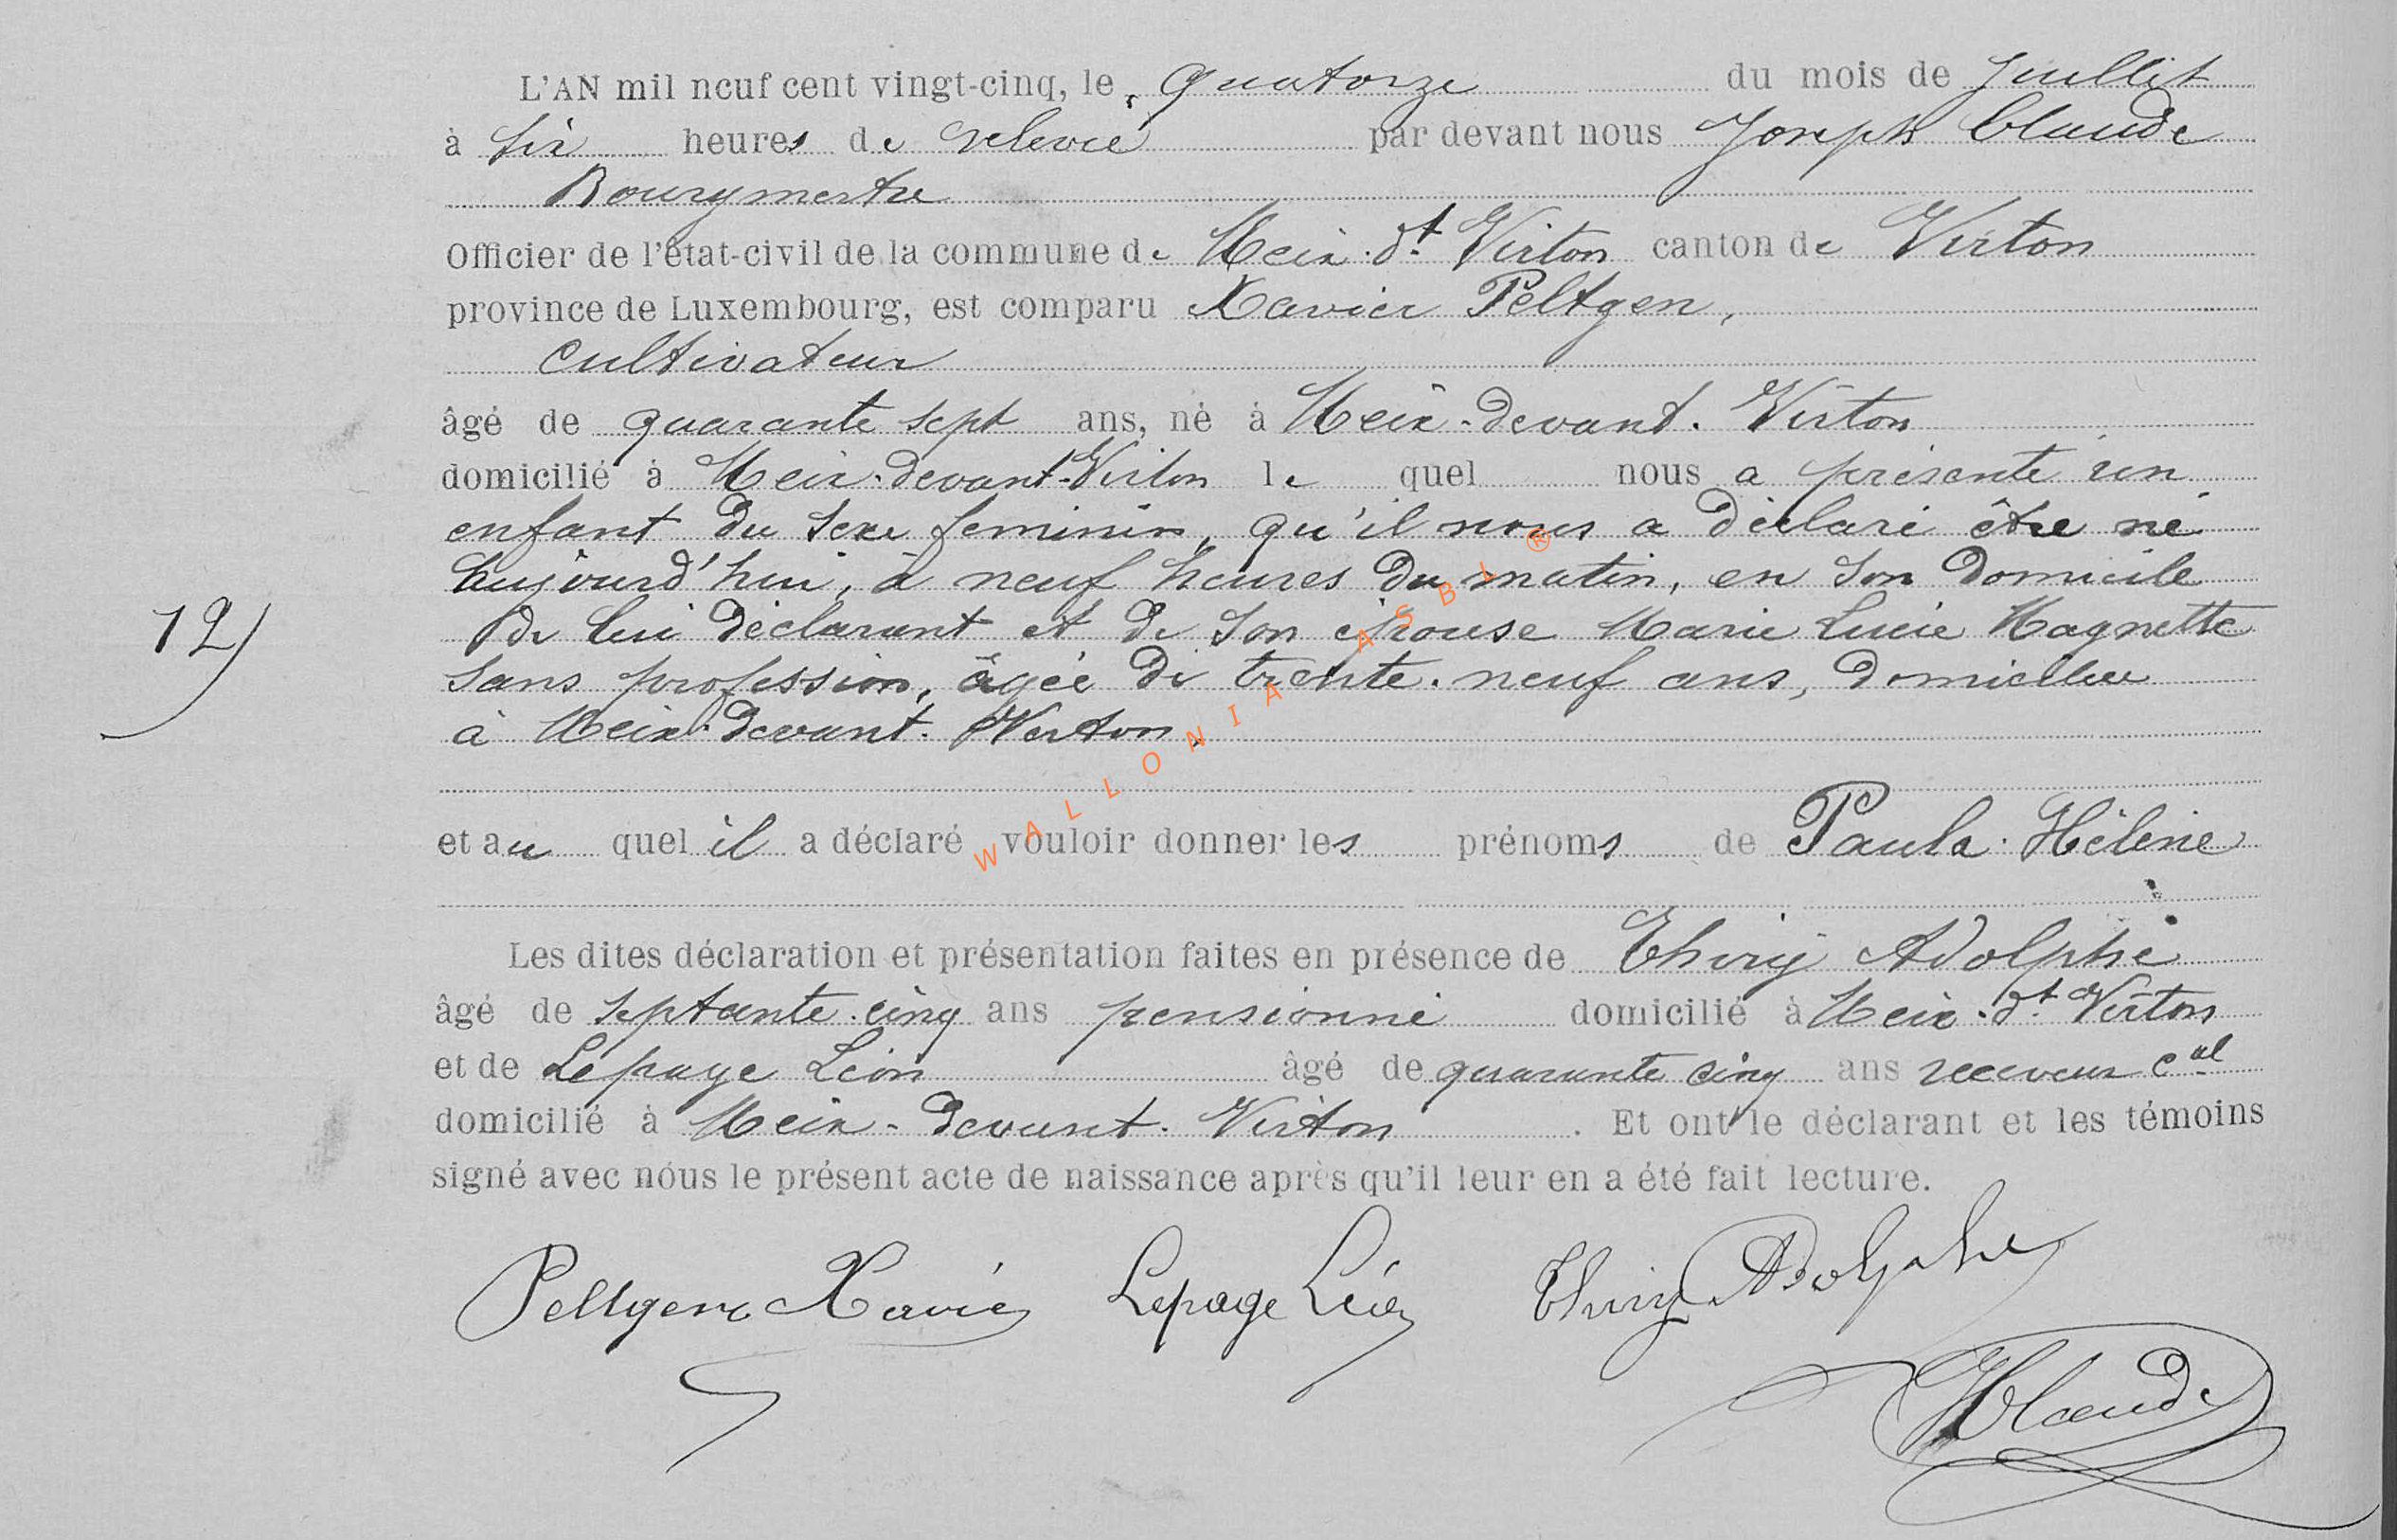 L'AN mil neuf cent vingt-cinq, le quatorze du mois de Juillet
à six heures de relevée par devant nous Joseph Claude
Bourgmestre
Officier de l'état-civil de la commune de Meix-dt Virton canton de Virton
province de Luxembourg, est comparu Xavier Peltgen,
cultivateur
âgé de quarante sept ans, né à Meix-devant-Virton
domicilié à Meix-devant-Virton lequel nous a présenté un
enfant du sexe feminin, qu'il nous a déclaré être né
aujourd'hui, à neuf heures du matin, en son domicile
12) de lui déclarant et de son épouse Marie Lucie Magnette
sans profession, âgée de trente-neuf ans, domiciliée
à Meix-devant-Virton.
et auquel il a déclaré vouloir donner les prénoms de Paula-Hélène
Les dites déclaration et présentation faites en présence de Thiry Adolphe
âgé de septante-cinq ans pensionné domicilié à Meix-dt Virton
et de Lepage Léon âgé de quarante cinq ans receveur cal
domicilié à Meix-devant-Virton. Et ont le déclarant et les témoins
signé avec nous le présent acte de naissance après qu'il leur en a été fait lecture.
Peltgen Xavier Lepage Léon Thiry Adolphe
JClaude
WALLONIA ASBL ®